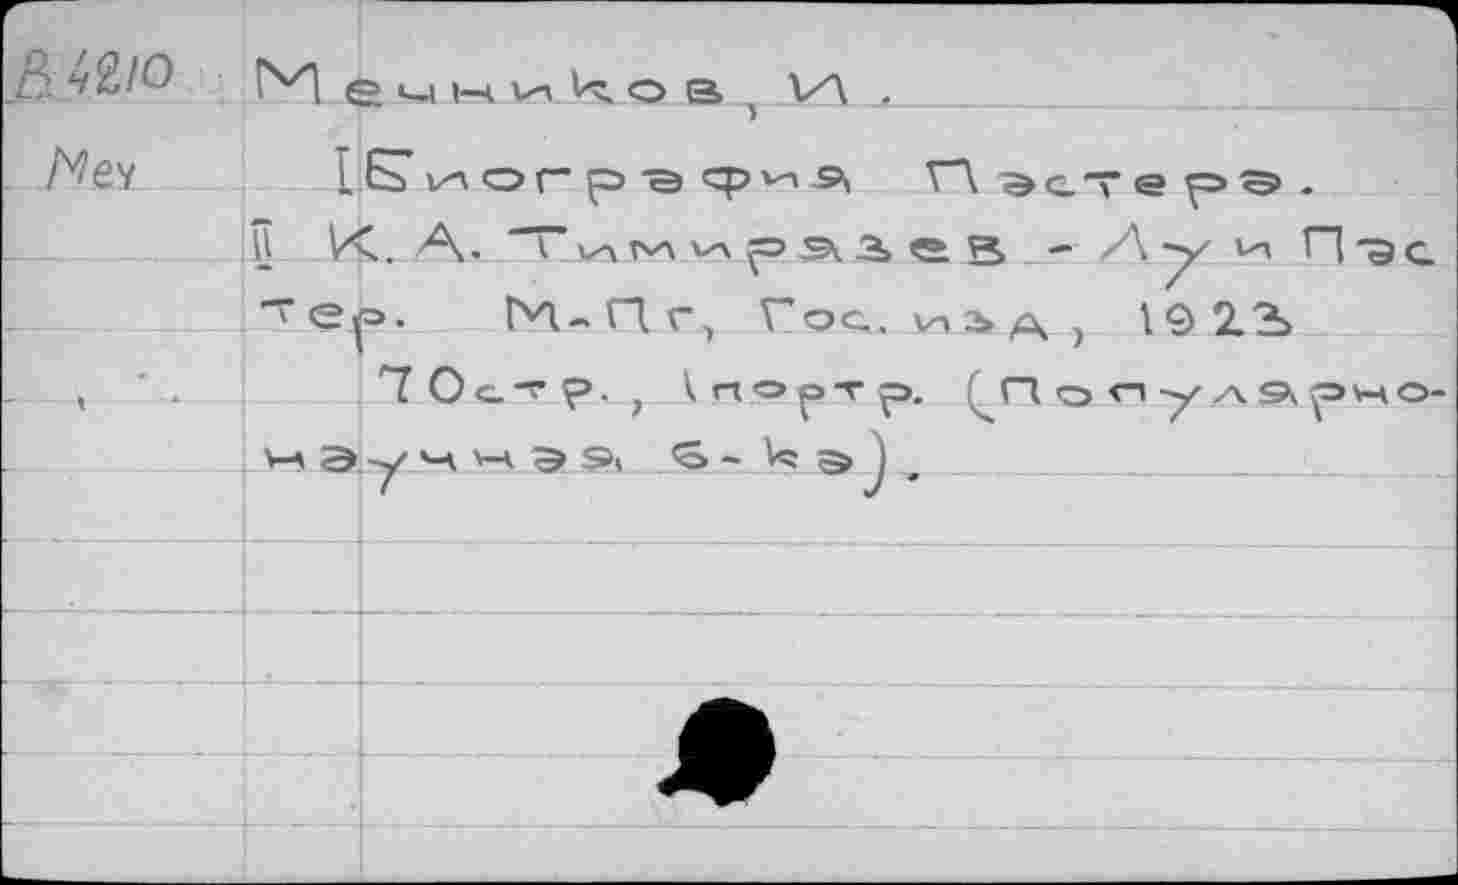 В.4210 Мечников, И.
Меч I Биография Пастера.
II К. А. Тимирязев - Луи Пас
тер. М-Пг, Гос. изд, 1923
70стр., 1портр. (Популярно-
научная б-ка).